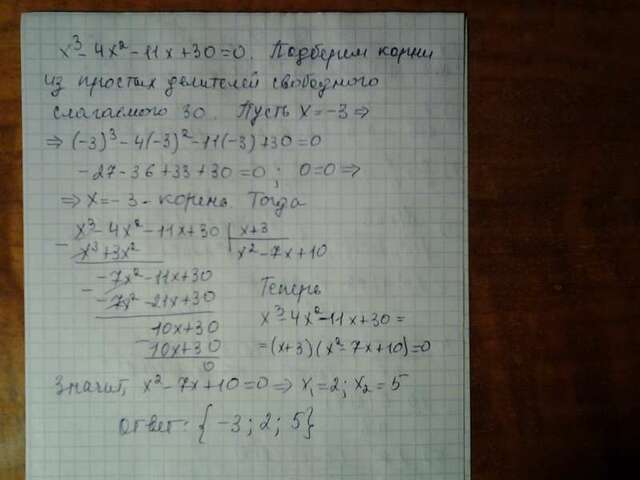 x³ - 4x² - 11x + 30 = 0. Подберем корни
из простых делителей свободного
слагаемого 30. Пусть x = -3 ⇒
⇒ (-3)³ - 4(-3)² - 11(-3) + 30 = 0
-27 - 36 + 33 + 30 = 0; 0 = 0 ⇒
⇒ x = -3 - корень. Тогда
x³ - 4x² - 11x + 30 | x + 3
x³ + 3x² x² - 7x + 10
-7x² - 11x + 30
-7x² - 21x + 30
10x + 30
10x + 30
0
Теперь
x³ - 4x² - 11x + 30 =
= (x + 3)(x² - 7x + 10) = 0
Значит, x² - 7x + 10 = 0 ⇒ x₁ = 2; x₂ = 5
Ответ: {-3; 2; 5}